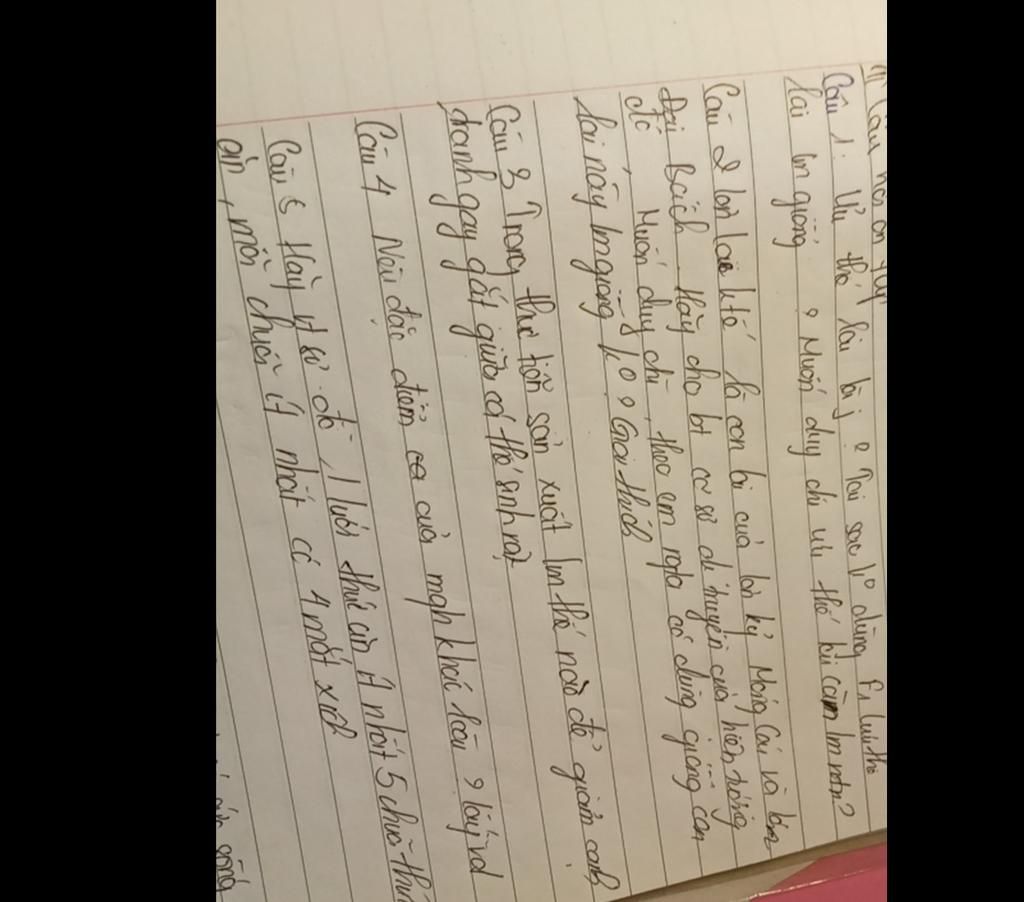 Câu hỏi ôn tập
Câu 1: Ưu thế lai là j ? Tại sao k° dùng F1 ưu thế
lai lm giống ? Muốn duy chì ưu thế lai cần lm ntn?
Câu 2 lợn lai ktế là con lai của lợn kỷ Móng Cái và lợn
Đại Bạch. Hãy cho bt cơ sở di truyền của hiện tượng
đó, Muốn duy chì, theo em ngta có dùng giống con
lai này lm giống k° ? Giải thích
Câu 3 Trong thực tiễn sản xuất lm thế nào để giảm cạnh
tranh gay gắt giữa cá thể sinh vật
Câu 4 Nêu đặc điểm của mqh khác loài ? lấy vd
Câu 5 Hãy vt sơ đồ 1 lưới thức ăn ít nhất 5 chuỗi thức
ăn, mỗi chuỗi ít nhất có 4 mắt xích
sống